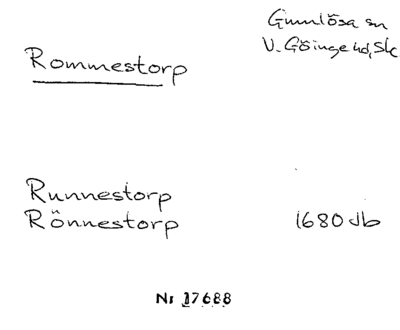 Gumlösa sn
V. Göinge hd, Sk
Rommestorp
Runnestorp
Rönnestorp 1680 Jb
Nr 17688